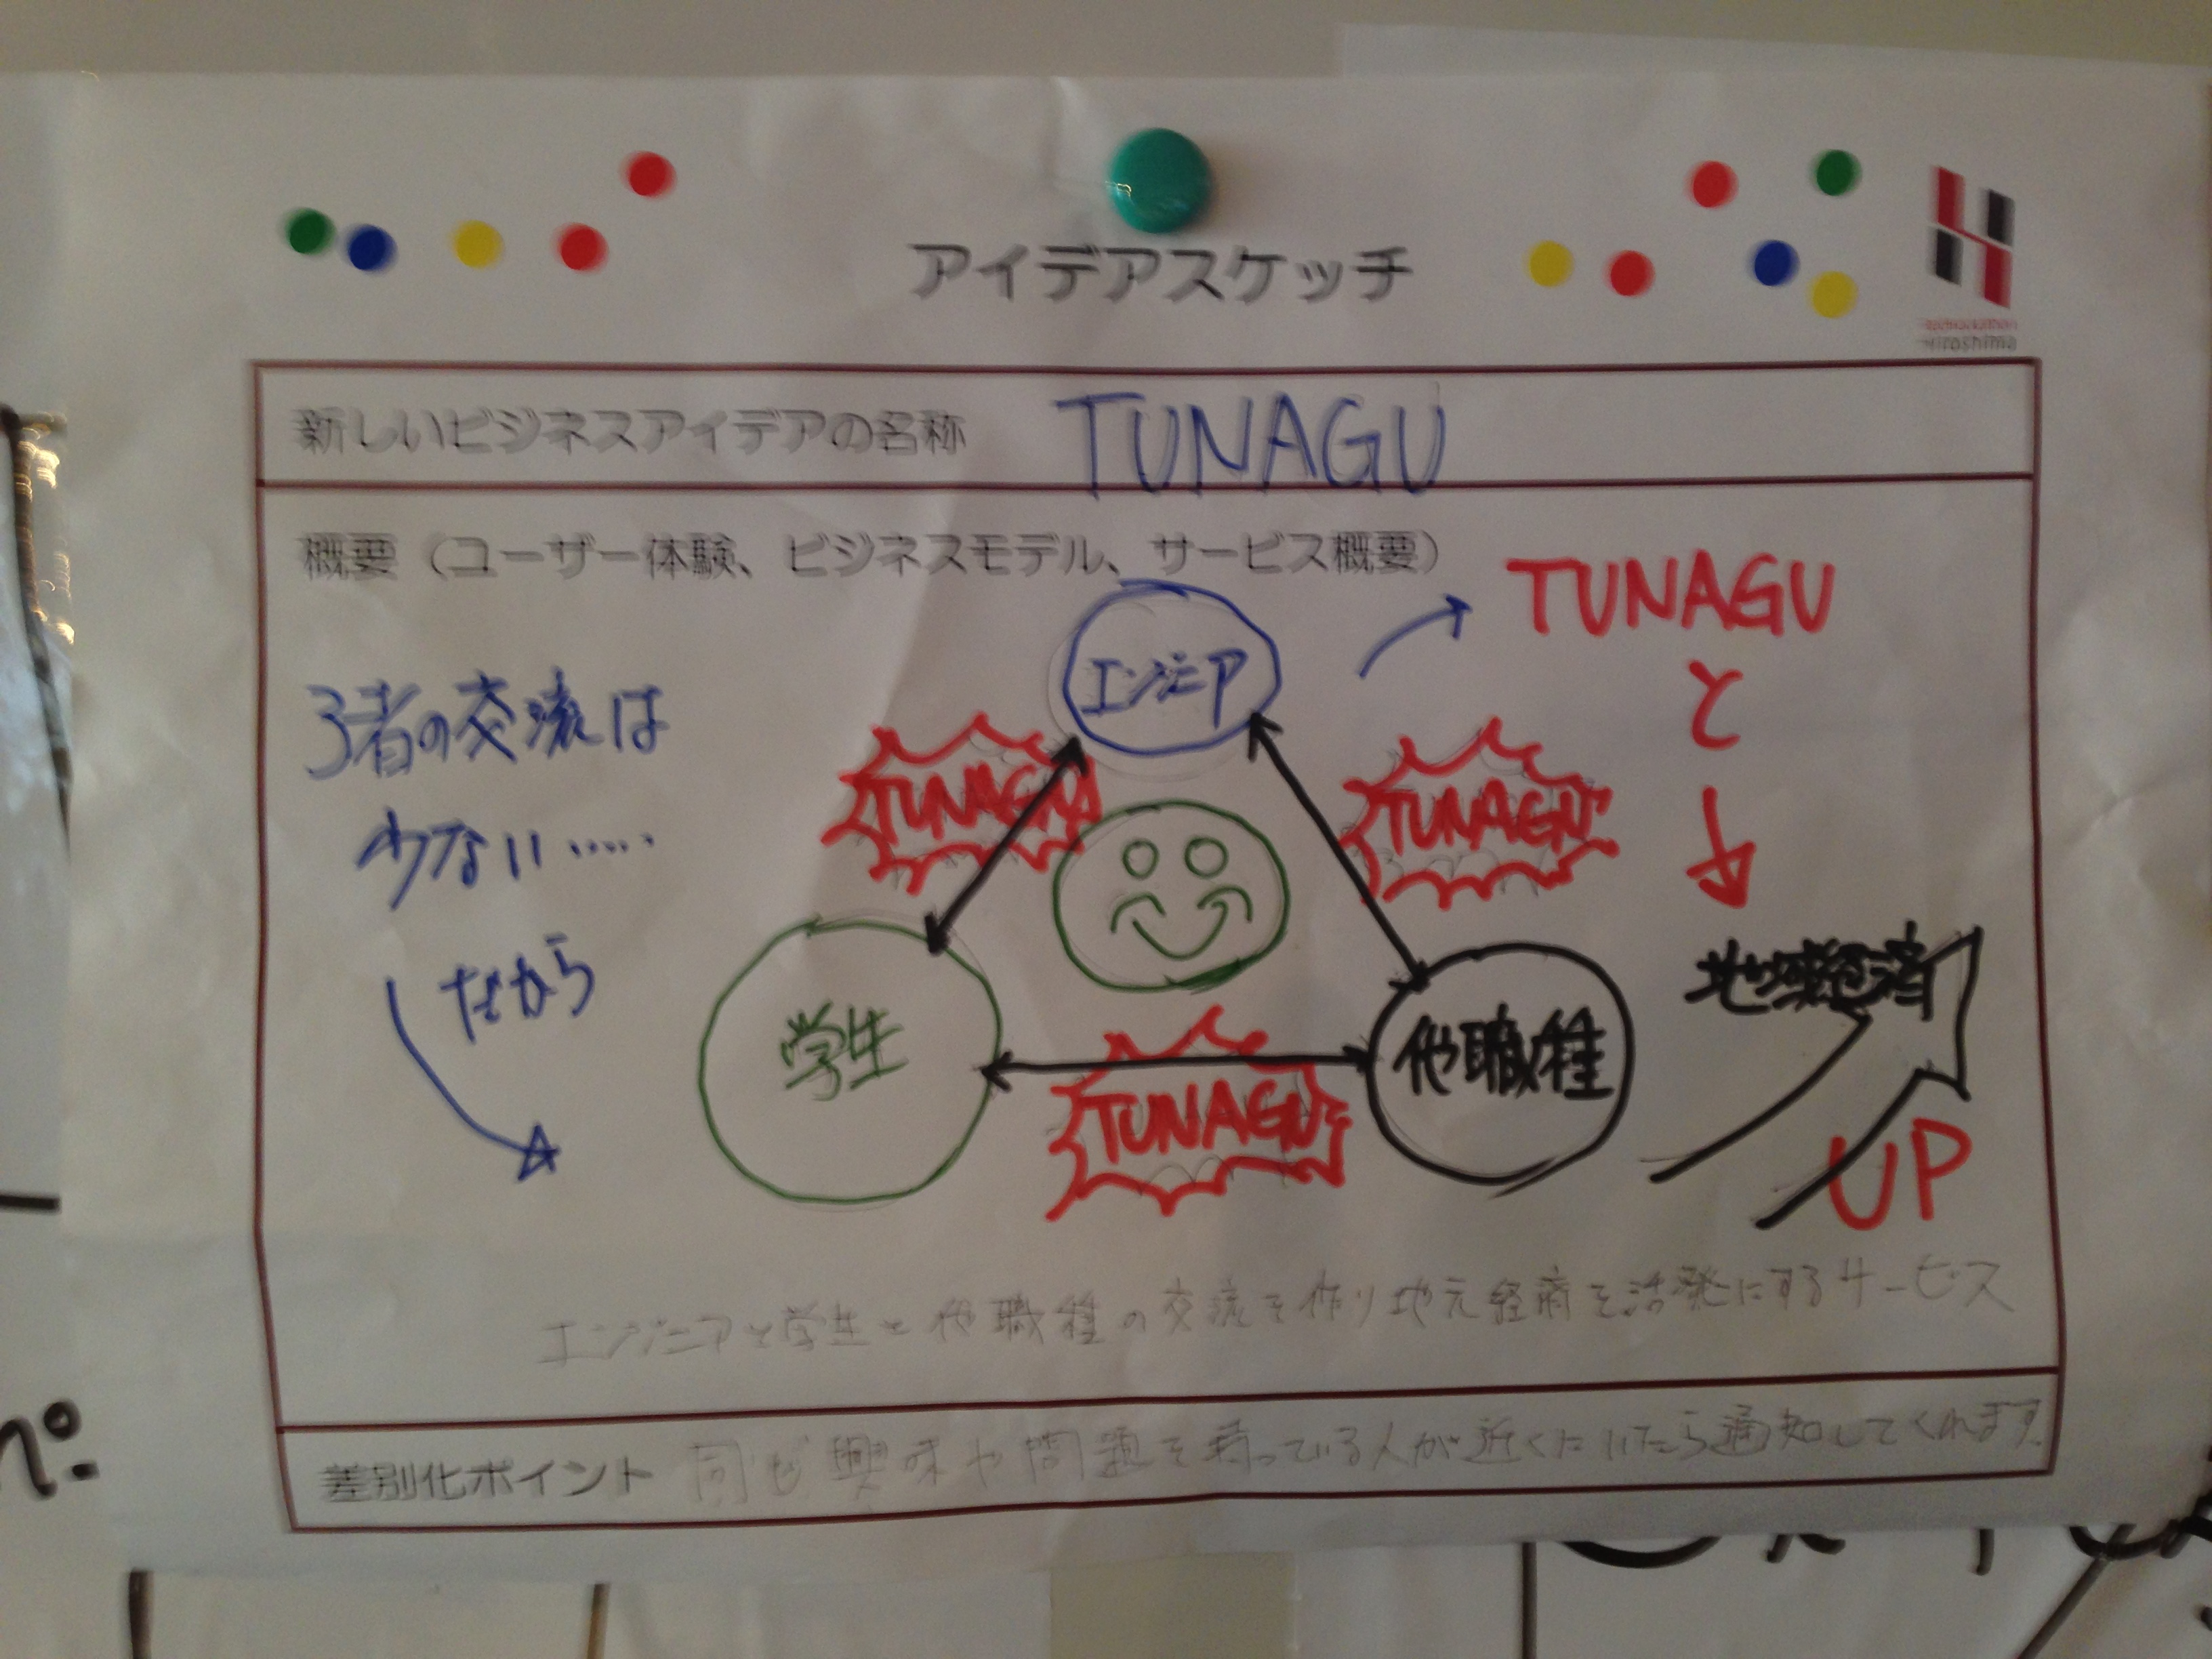 アイデアスケッチ
Hiroshima
新しいビジネスアイデアの名称 TUNAGU
概要（ユーザー体験、ビジネスモデル、サービス概要）
3者の交流は
少ない……
だから
エンジニア
TUNAGU
TUNAGU
学生
TUNAGU
他職種
TUNAGU
と
地域経済
UP
エンジニアと学生と他職種の交流を作り地元経済を活発にするサービス
差別化ポイント 同じ興味や問題を持っている人が近くにいたら通知してくれます。